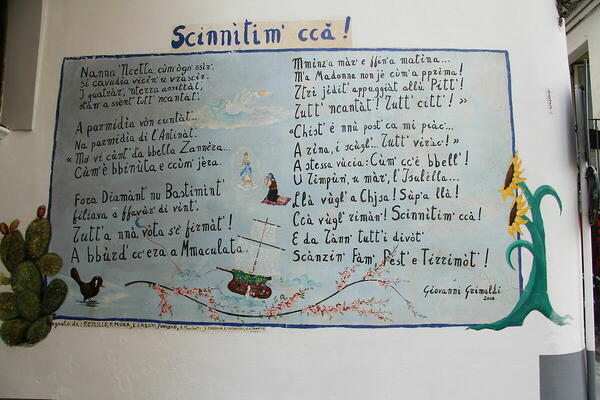 Scinnìtim' ccà !
Nanna 'Ncetta, cùm'ogn'ssìr',
si cavudia vicin'u vrascìr.
I quatràr', 'nterra assittàt',
stàn'a ssènt' tutt' 'ncantat'.
A parmidìa vòn cuntàt'...
Na parmidìa di l'Antinàt'.
« Mo' vi cùnt' d'a bbella Zannèra...
Cùm'è bbinùta e ccùm' jèra.
Fora Diamànt' nu Bastimìnt'
filiava a ffavùr' di vìnt'.
Tutt'a nna vòta s'è firmàt' !
A bbùrd' cc'era a Mmaculata.
Mmìnz'a màr' e ffin'a matina...
M'a Madonne non jè cùm'a pprima !
Ntri jidìt' appuggiàt allà "Pitt' !
Tutt' 'ncantàt' ! Tutt' citt' ! »
«Chist' è nnù post' ca mi piàc'...
A rèna, i scùgl'... Tutt' viràc' !»
A stessa vùcia: Cùm' cc'è bbell' !
U Timpùn', u màr', l'Isulèlla...
Llà vùgl' a Chjsa ! Sùp'a llà !
Ccà vùgl' rimàn' ! Scinnìtim' ccà !
E da Tànn' tutt'i divòt'
Scànzin' Fàm', Pest' e Tirrimòt' !
Giovanni Grimaldi